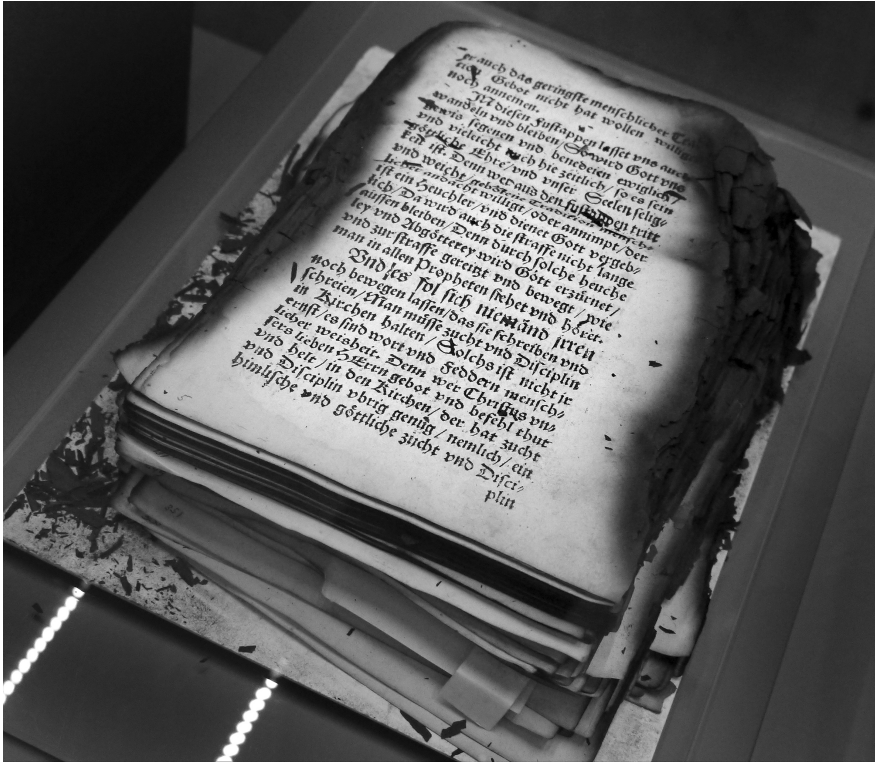 er auch das geringste menschlicher
tion Gebot nicht hat wollen willig
noch annemen.
In diesen Fustappen lasset vns auch
wandeln vnd bleiben / So wird Gott vns
gewis segenen vnd benedeien ewiglich /
vnd vieleicht auch hie zeitlich / so es sein
göttliche Ehre / vnd vnser Seelen selig⸗
keit ist. Denn wer aus den fustappen tritt
vnd weichet /
williget / oder annimpt / der
ist ein Heuchler / vnd dienet Gott vergeb⸗
lich / Da wird auch die straffe nicht lange
aussen bleiben / Denn durch solche heuche
ley vnd Abgötterey wird Gott erzürnet /
vnd zur straffe gereitzt vnd bewegt / wie
man in allen Propheten siehet vnd höret.
Vnd es sol sich niemand jrren
noch bewegen lassen / das sie schreiben vnd
schreien / Man müsse zucht vnd Disciplin
in Kirchen halten / Solchs ist nicht jr
ernst / es sind wort vnd feddern mensch⸗
licher weisheit. Denn wer Christus vn⸗
sers lieben HErrn gebot vnd befehl thut
vnd helt / in den Kirchen / der hat zucht
vnd Disciplin vbrig genug / nemlich / ein
himlische vnd göttliche zucht vnd Disci⸗
plin